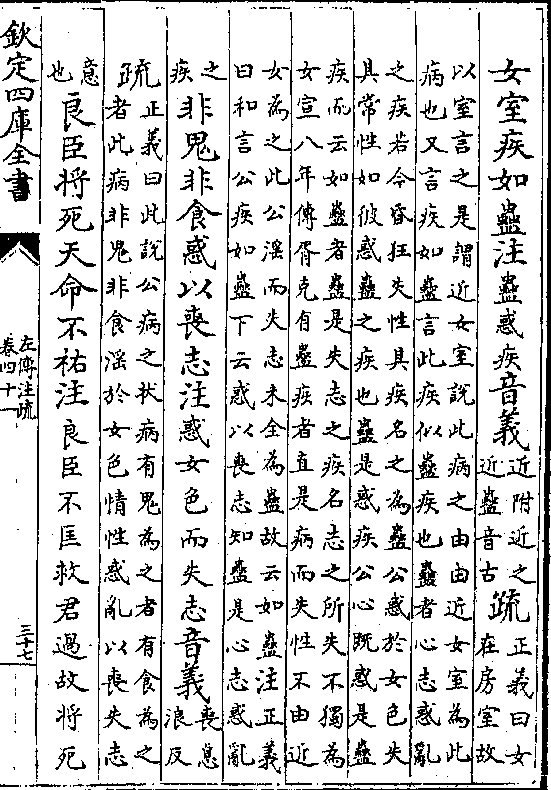 女室疾如蠱注蠱惑疾音義近附近之近蠱音古疏正義曰女在房室故
以室言之是謂近女室說此病之由由近女室為此
病也又言疾如蠱言此疾似蠱疾也蠱者心志惑亂
之疾若今昏狂失性其疾名之為蠱公惑於女色失
其常性如彼惑蠱之疾也蠱是惑疾公心既惑是蠱
疾而云如蠱者蠱是失志之疾名志之所失不獨為
女宣八年傳胥克有蠱疾者直是病而失性不由近
女為之此公淫而失志未全為蠱故云如蠱注正義
曰和言公疾如蠱下云惑以喪志知蠱是心志惑亂
之疾非鬼非食惑以喪志注惑女色而失志音義喪息浪反
疏正義曰此說公病之狀病有鬼為之者有食為之
者此病非鬼非食淫於女色情性惑亂以喪失志
意也良臣將死天命不祐注良臣不匡救君過故將死
欽定四庫全書
左傳注疏
卷四十一
三十七